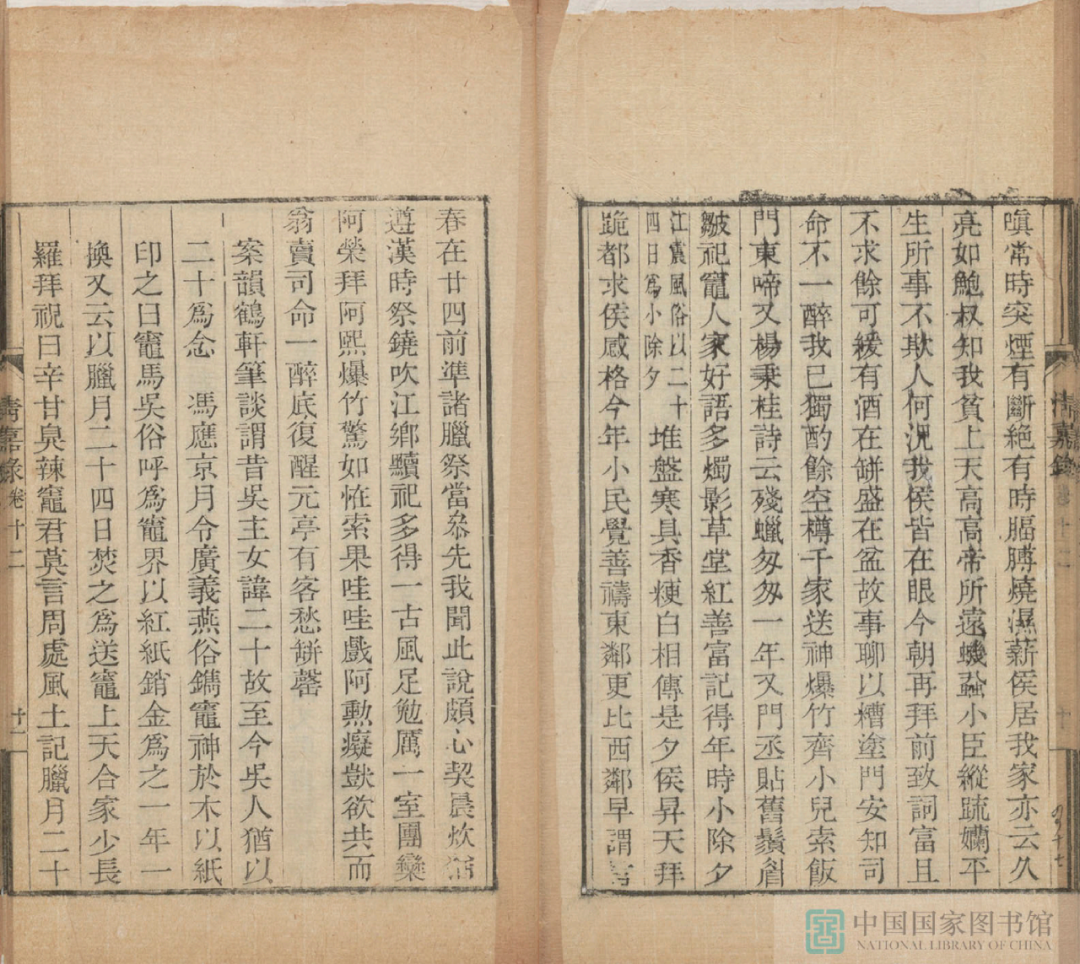 嗔常時突煙有斷絕有時腷膊燒濕薪侯居我家亦云久
亮如鮑叔知我貧上天高高帝所遠蟣蝨小臣縱疏嬾平
生所事不欺人何況我侯皆在眼今朝再拜前致詞富且
不求餘可緩有酒在缾盛在盆故事聊以糟塗門安知司
命不一醉我已獨酌餘空樽千家送神爆竹齊小兒索飯
門東啼又楊秉桂詩云殘蠟匆匆一年又門丞貼舊鬚眉
皺祀竈人家好語多燭影草堂紅善富記得年時小除夕
江震風俗以二十
四日爲小除夕
堆盤寒具香粳白相傳是夕侯昇天拜
跪都求侯感格今年小民覺善禱東鄰更比西鄰早謂
清嘉錄
春在廿四前準諸臘祭當叅先我聞此說頗心契晨炊
遵漢時祭鐃吹江鄉驥祀多得一古風足勉厲一室團欒
阿榮拜阿熙爆竹驚如恠索果哇哇戲阿勲癡獃欲共而
翁賣司命一醉底復醒元亭有客愁缾罄
案韻鶴軒筆談謂昔吳主女諱二十故至今吳人猶以
二十爲念 馮應京月令廣義燕俗鐫竈神於木以紙
印之曰竈馬吳俗呼爲竈界以紅紙銷金爲之一年一
換又云以臘月二十四日焚之爲送竈上天合家少長
羅拜祝曰辛甘臭辣竈君莫言周處風土記臘月二十
清嘉錄 卷十二
十一
中国国家图书馆
NATIONAL LIBRARY OF CHINA